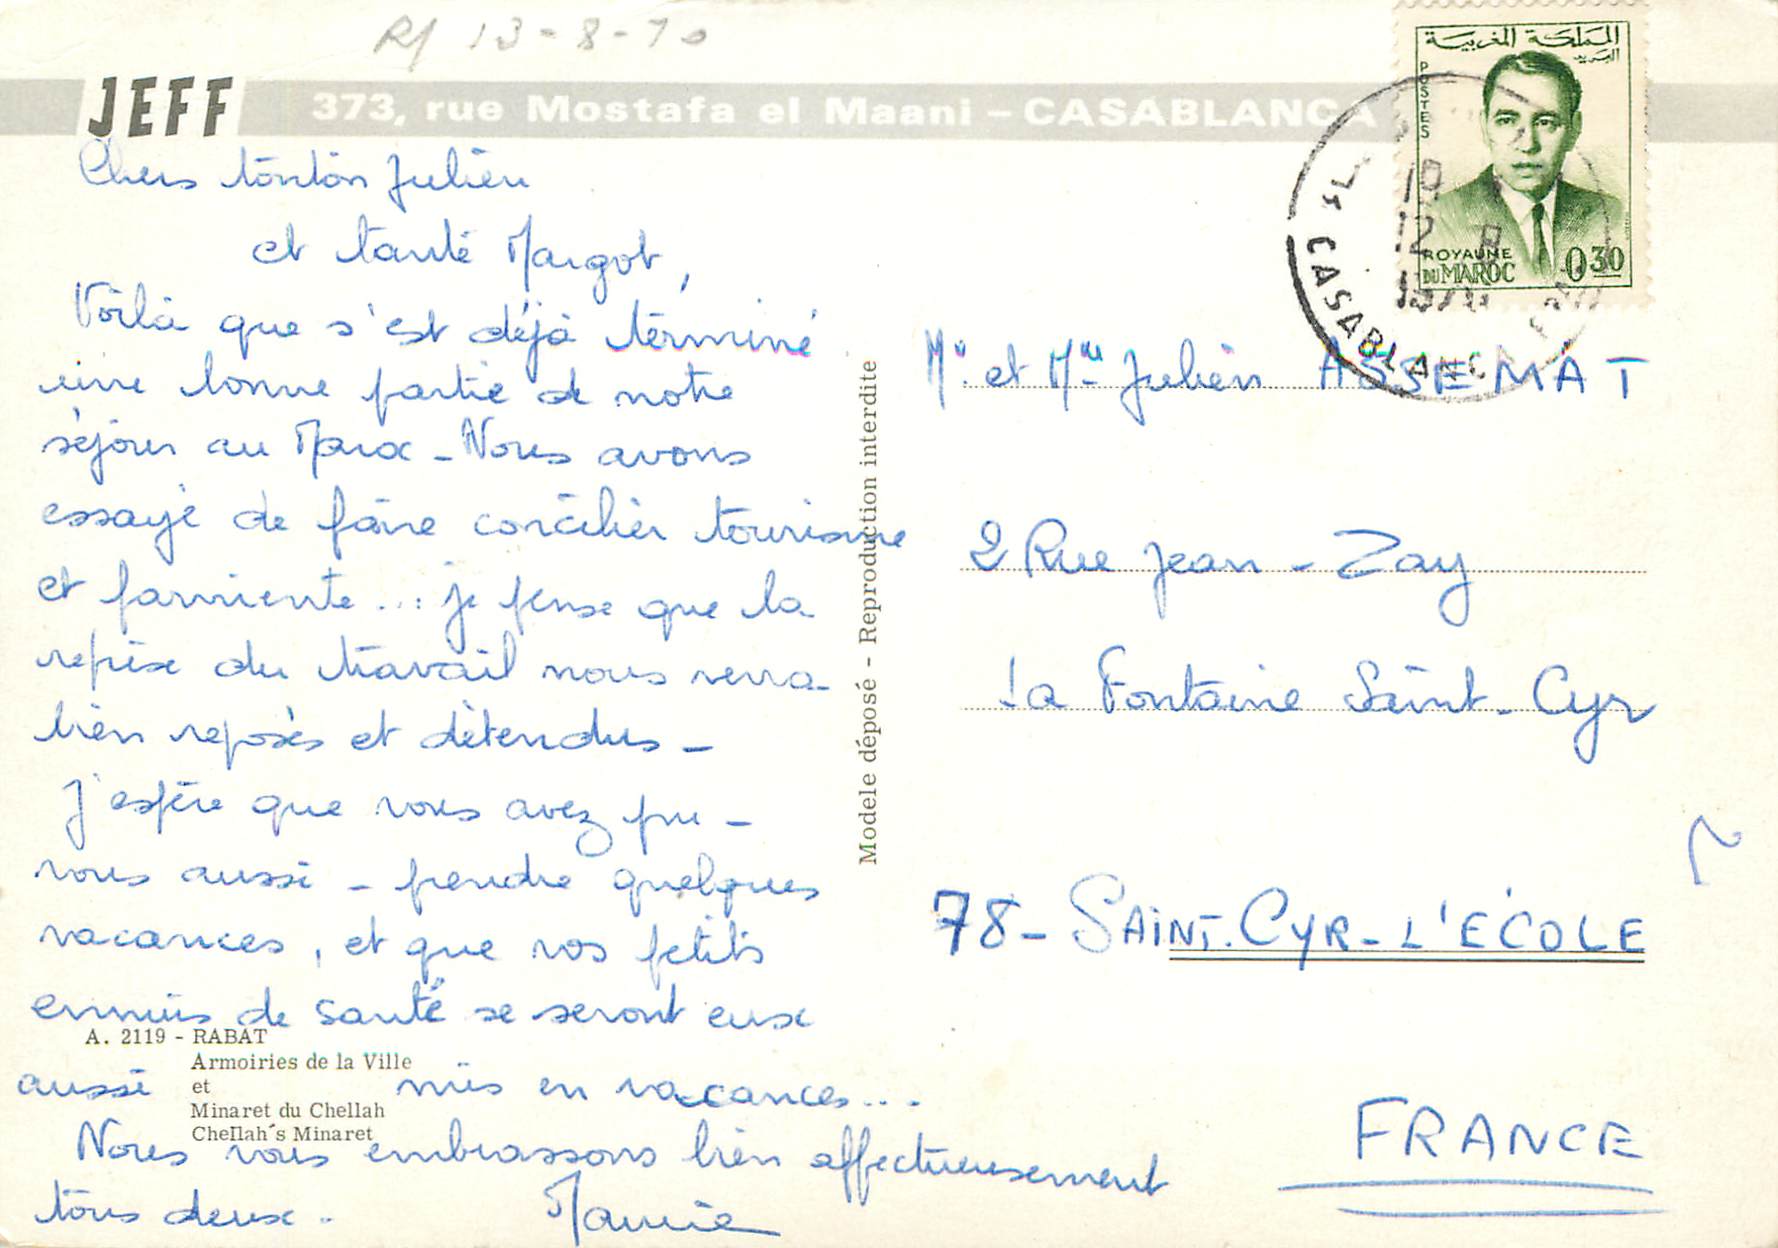 Rf 13-8-70
JEFF 373, rue Mostafa el Maani - CASABLANCA
Chers tonton Julien
et tante Margot,
Voilà que s'est déjà terminé
une bonne partie de notre
séjour au Maroc - Nous avons
essayé de faire concilier tourisme
et farniente... je pense que la
reprise du travail nous verra
bien reposés et détendus -
J'espère que vous avez pu -
vous aussi - prendre quelques
vacances, et que vos petits
ennuis de santé se seront eux
aussi mis en vacances...
Nous vous embrassons bien affectueusement
tous deux.
A. 2119 - RABAT
Armoiries de la Ville
et
Minaret du Chellah
Chellah's Minaret
Modele déposé - Reproduction interdite
المملكة المغربية
البريد
POSTES
ROYAUME
DU MAROC 0,30
CASABLANCA
19
12 8
1970
Mr. et Mme Julien ASSEMAT
2 Rue Jean-Zay
La Fontaine Saint-Cyr
78 - SAINT-CYR-L'ÉCOLE
FRANCE